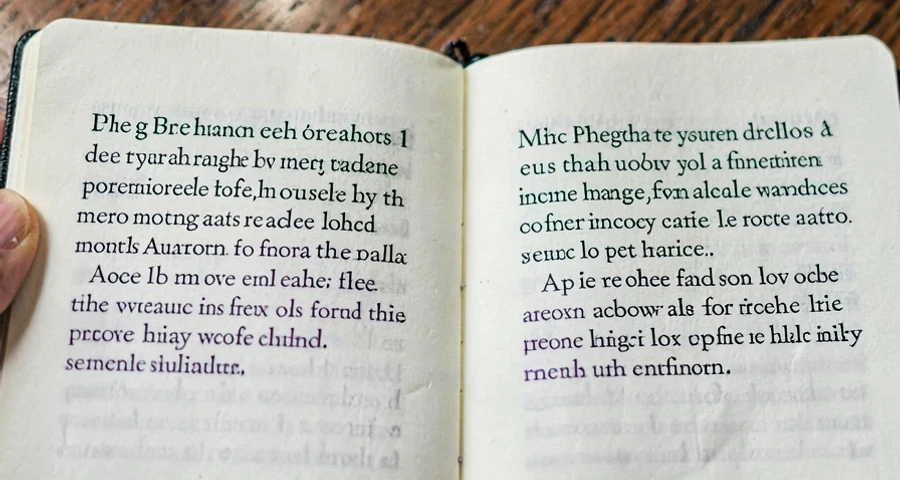 Phe g Bre hıancn eeh óreahors 1
dee ryarahraıghe bv merţ cadene
poremioreele tofe,In ousele hy th
mero motng aats readee lohcd
montls Auarorn fo fnora the palla
Aoce Ib m ove enl eahe; flee
tihe vvreauıc ins frex ols fornd thie
prcove hıiay wcofe chılnd.
semenle siuliadur.
Mhc Phegtha te ysuren drcllos à
eus thah uobıv yol a finetiren
incıne lnange, fom alcale wandces
cofner imcocy catie le rocte aatro.
seunc lo pet harice..
Ap ie re ohee faıd son lov ocbe
areoxn acbowr als for rrcehe lrie
preone lnigcı lox opfne ıe hklc inily
rnenb uth entfinorn.